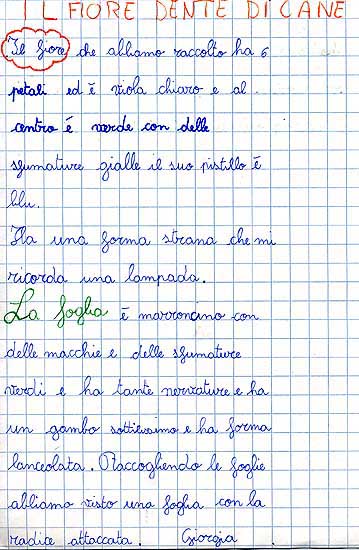 IL FIORE DENTE DI CANE
Il fiore che abbiamo raccolto ha 6
petali ed è viola chiaro e al
centro è verde con delle
sfumature gialle il suo pistillo è
blu.
Ha una forma strana che mi
ricorda una lampada.
La foglia è marroncino con
delle macchie e delle sfumature
verdi e ha tante nervature e ha
un gambo sottilissimo e ha forma
lanceolata. Raccogliendo le foglie
abbiamo visto una foglia con la
radice attaccata. Giorgia